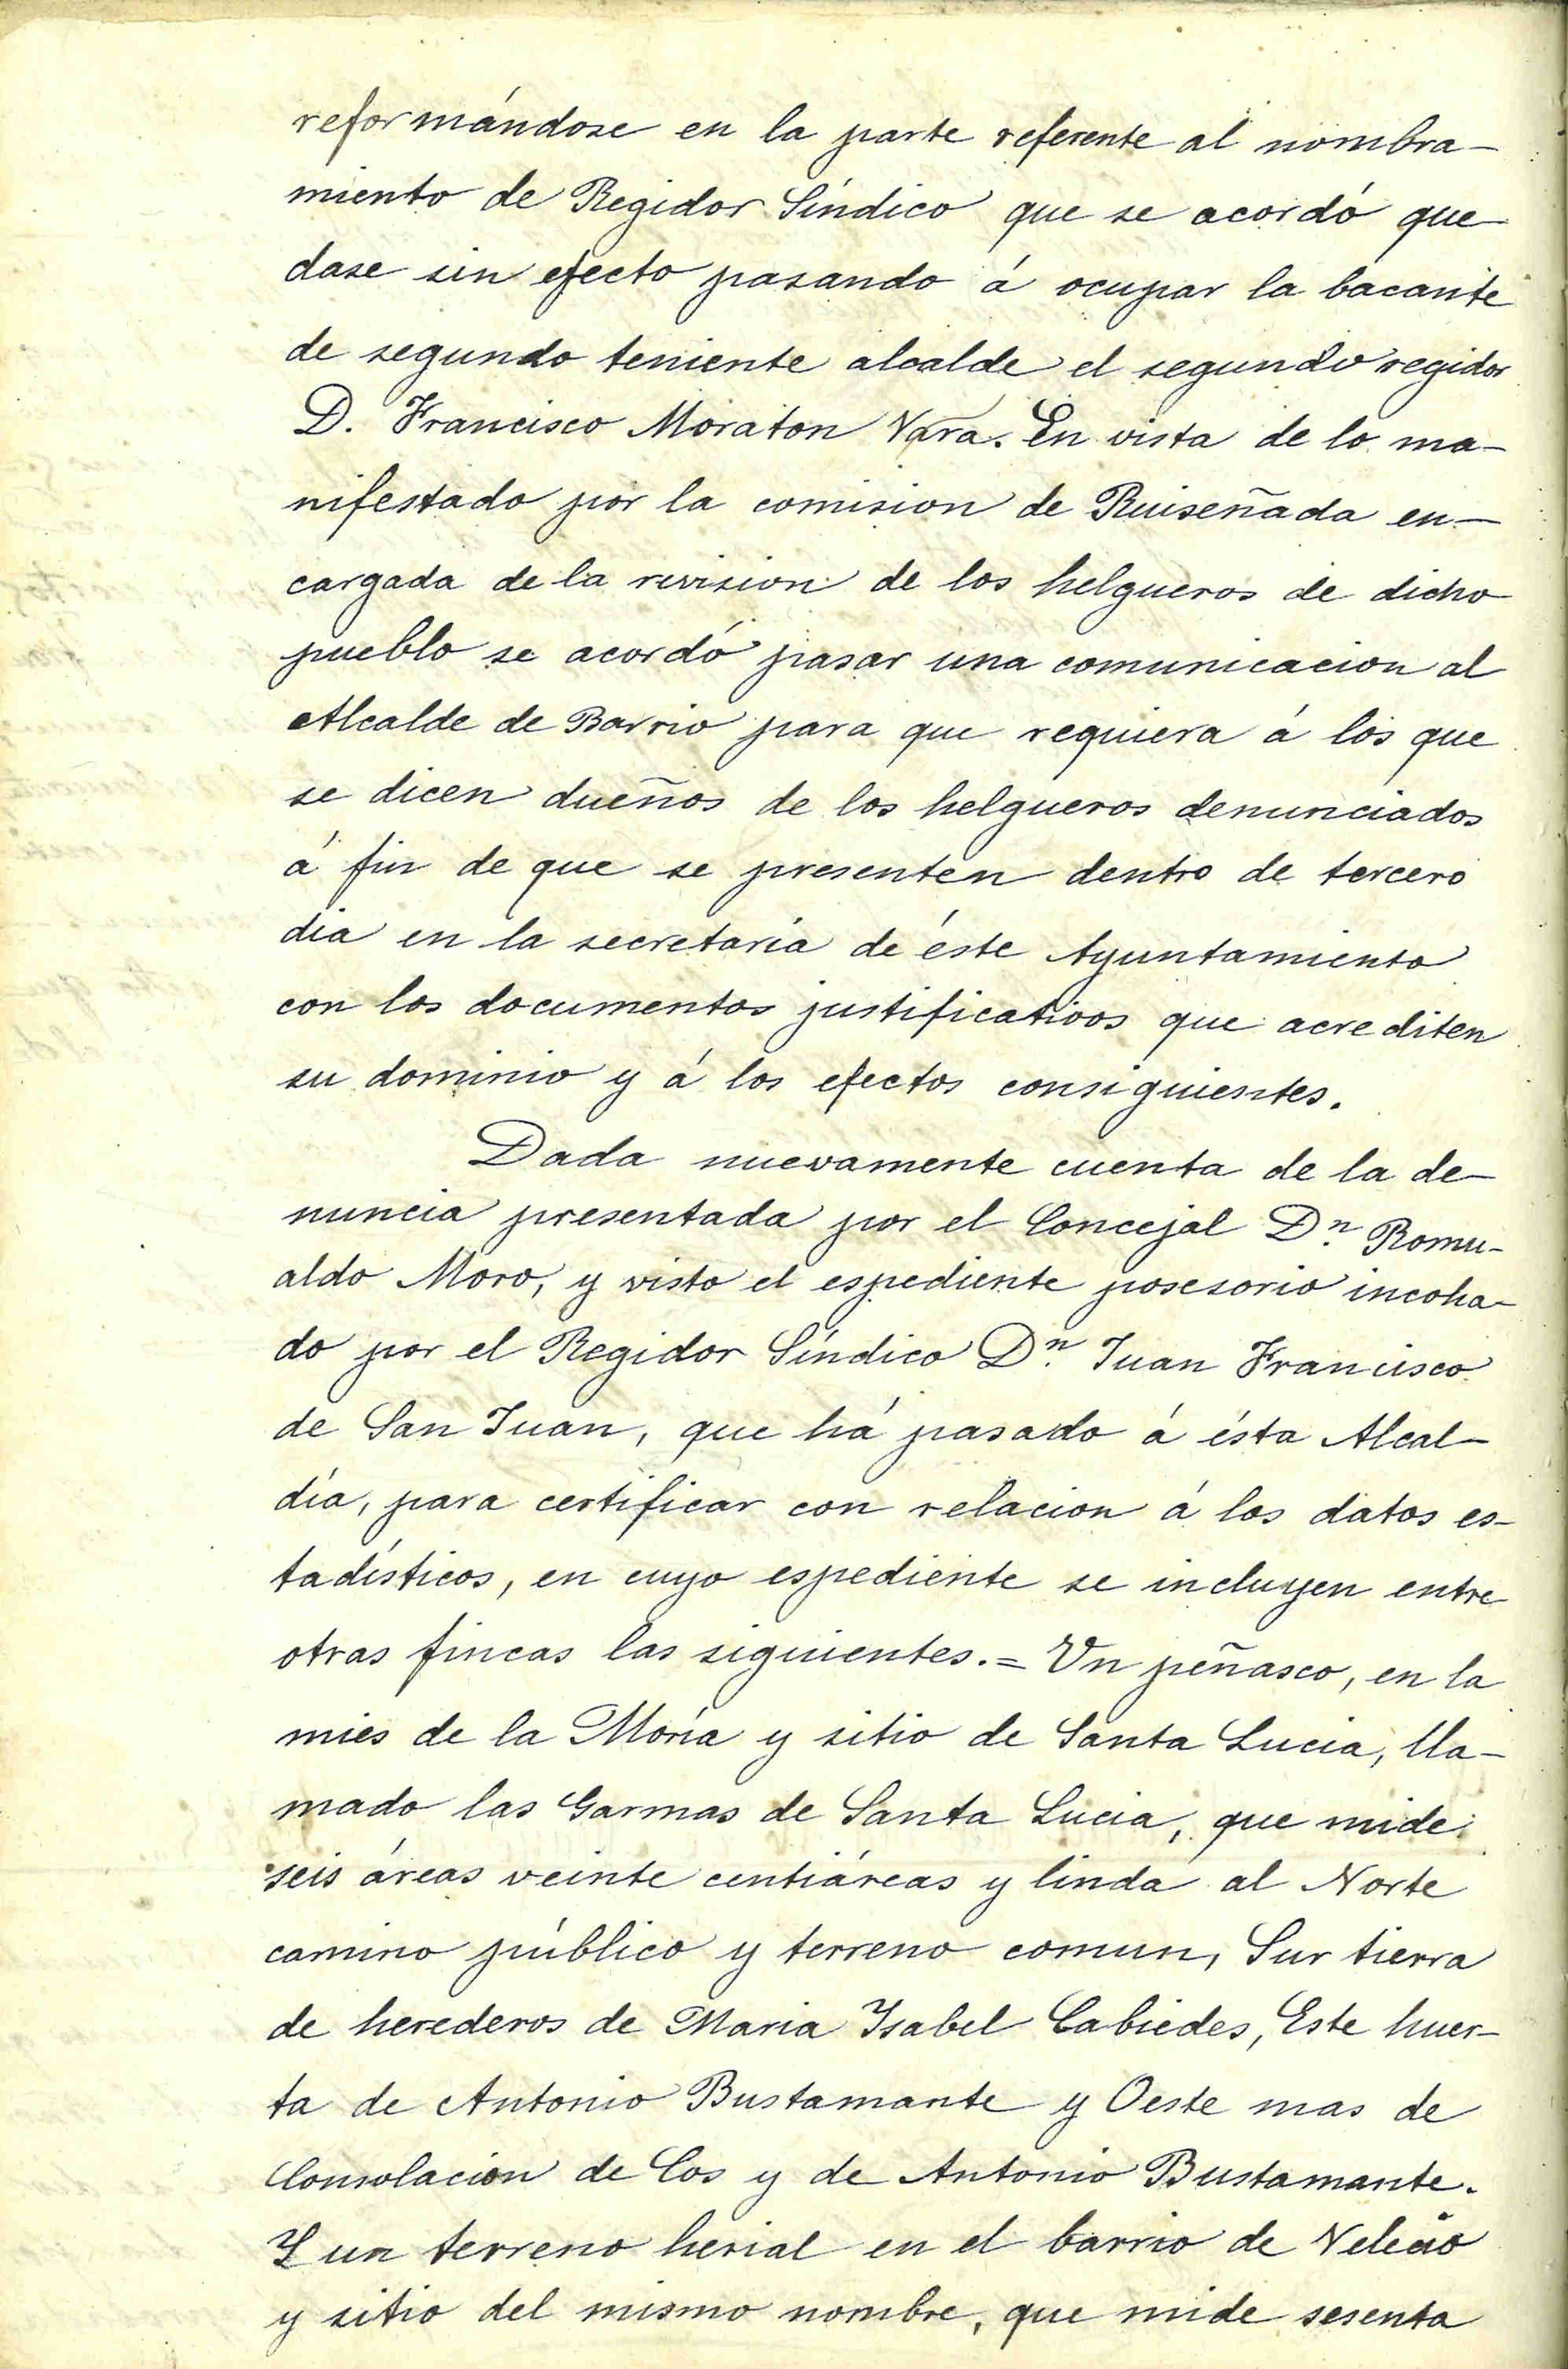 reformándose en la parte referente al nombra-
miento de Regidor Síndico que se acordó que
dase sin efecto pasando á ocupar la bacante
de segundo teniente alcalde el segundo regidor
D. Francisco Moraton Vara. En vista de lo ma-
nifestado por la comision de Ruiseñada en-
cargada de la revision de los helgueros de dicho
pueblo se acordó pasar una comunicacion al
Alcalde de Barrio para que requiera á los que
se dicen dueños de los helgueros denunciados
á fin de que se presenten dentro de tercero
dia en la secretaría de éste Ayuntamiento
con los documentos justificativos que acrediten
su dominio y á los efectos consiguientes.
Dada nuevamente cuenta de la de-
nuncia presentada por el Concejal Dn. Romu-
aldo Moro, y visto el espediente posesorio incoha-
do por el Regidor Síndico Dn. Juan Francisco
de San Juan, que há pasado á ésta Alcal-
día, para certificar con relacion á los datos es-
tadísticos, en cuyo espediente se incluyen entre
otras fincas las siguientes.= Un peñasco, en la
mies de la Moría y sitio de Santa Lucia, lla-
mado las Garmas de Santa Lucia, que mide
seis áreas veinte centiáreas y linda al Norte
camino público y terreno comun, Sur tierra
de herederos de Maria Isabel Cabiedes, Este huer-
ta de Antonio Bustamante y Oeste mas de
Consolacion de Cos y de Antonio Bustamante.
Y un terreno herial en el barrio de Velecio
y sitio del mismo nombre, que mide sesenta